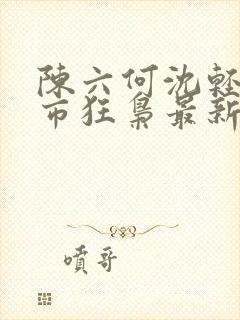 陳六何沈輕
市狂梟最新
噴哥